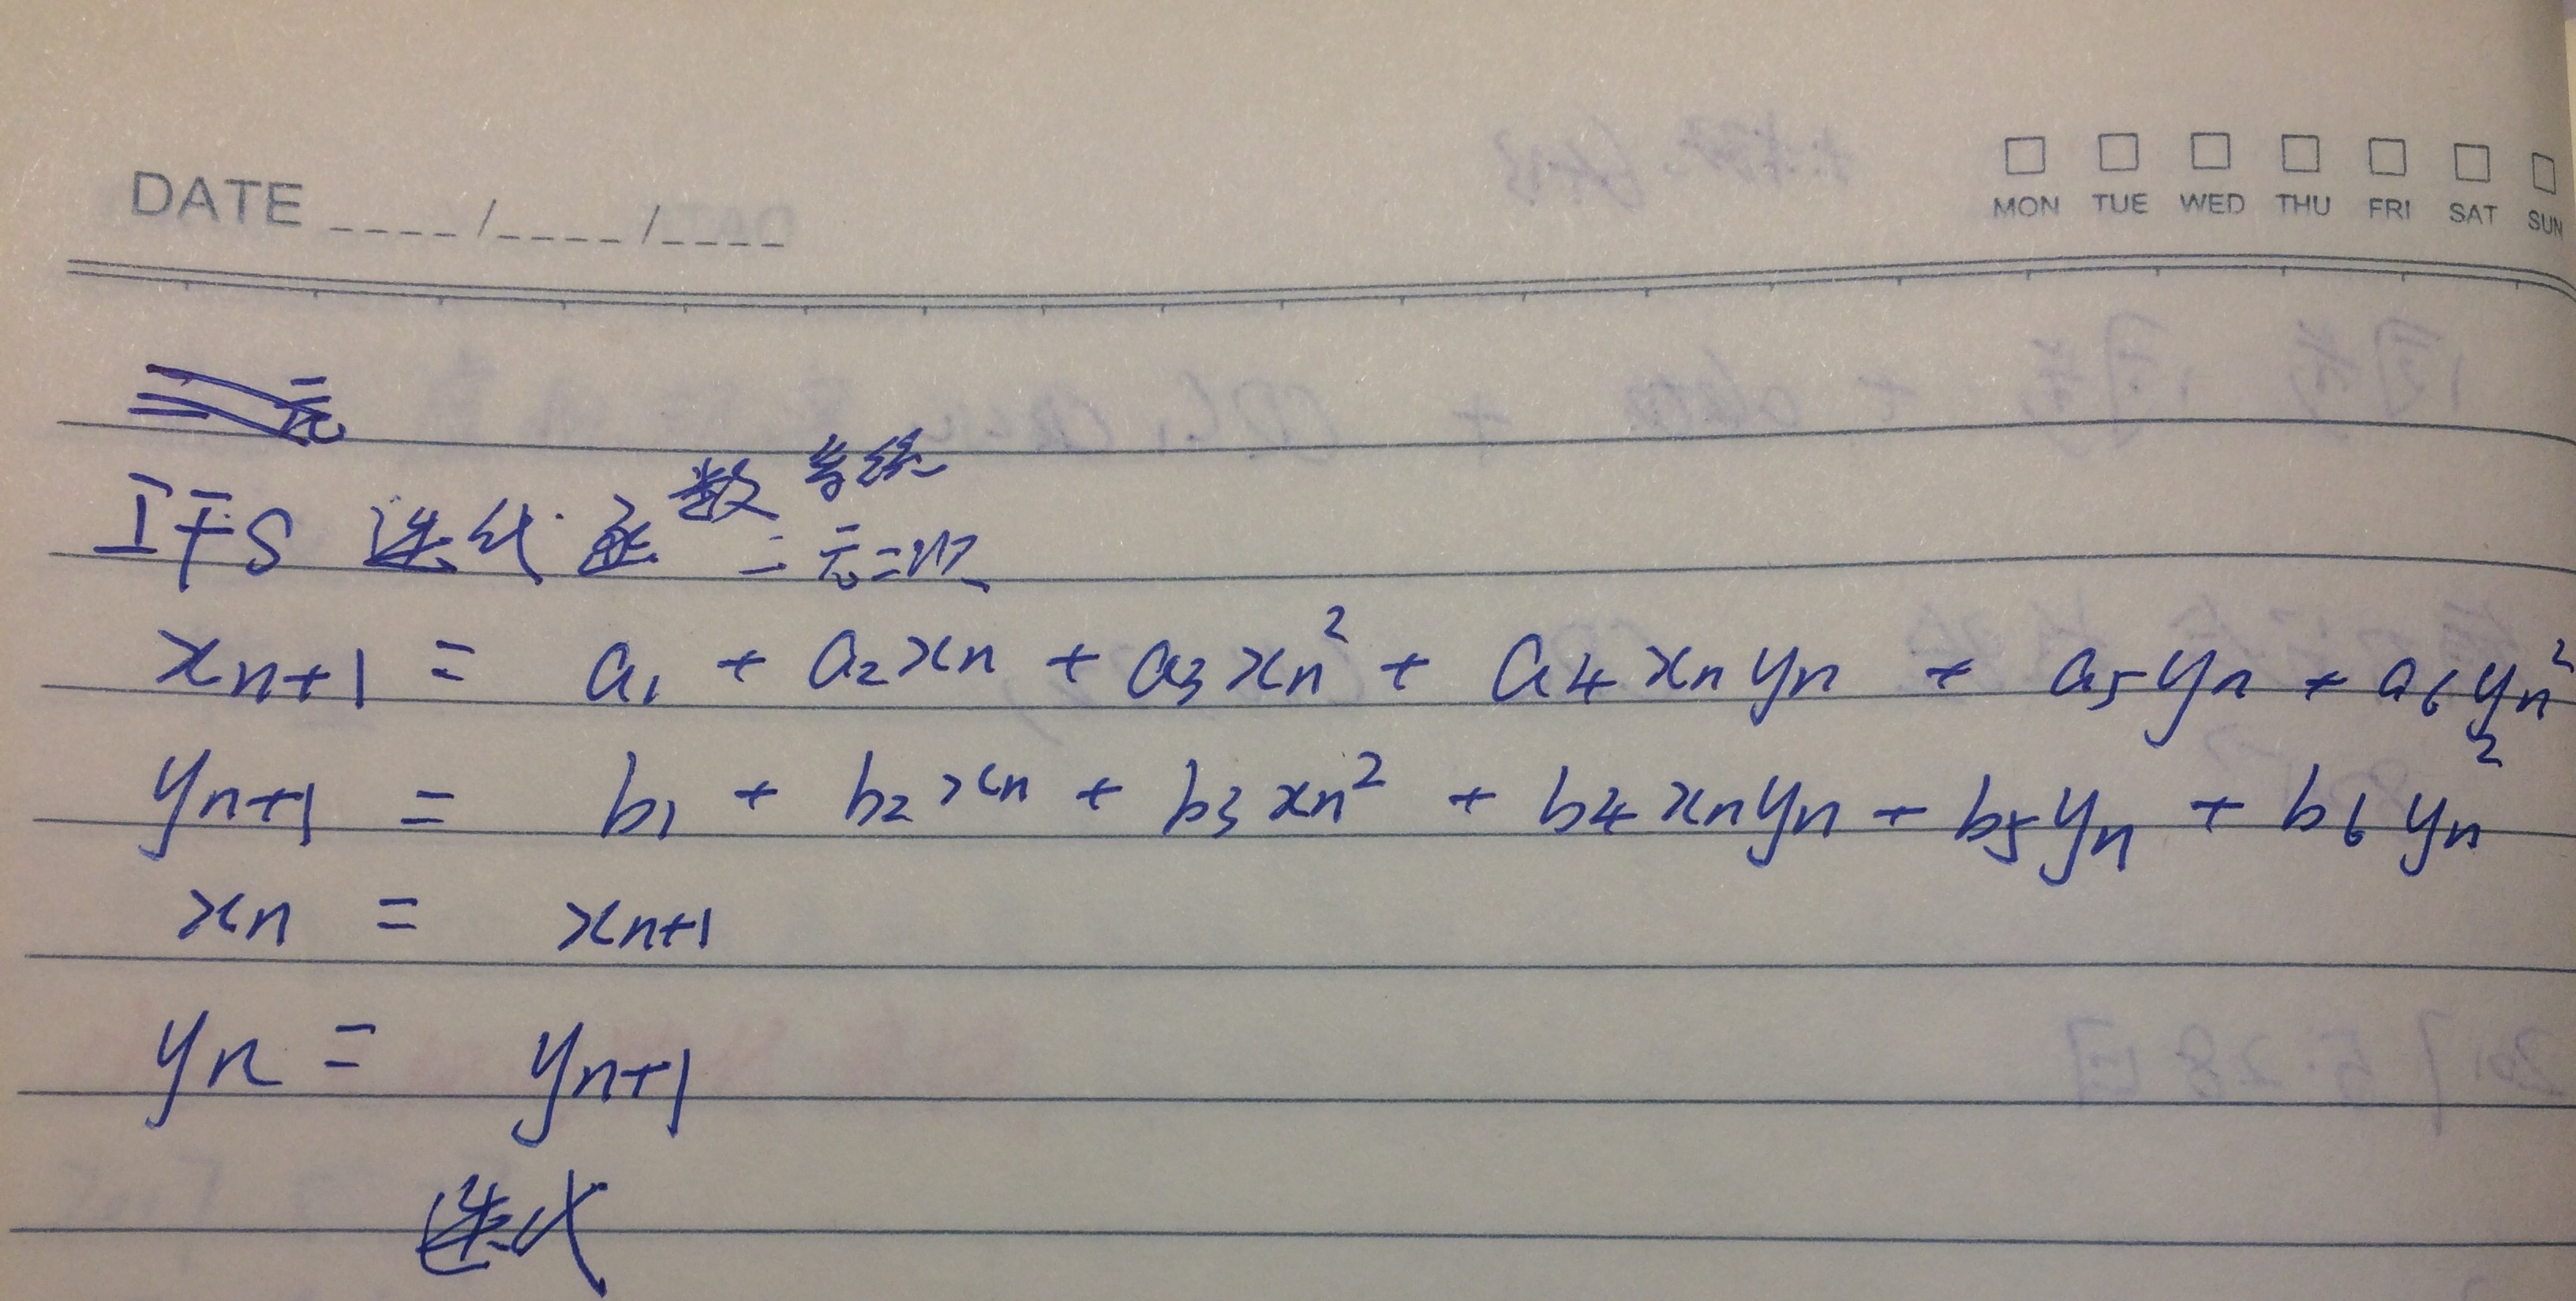 DATE ____/____/____
MON TUE WED THU FRI SAT SUN
二元
IFS 迭代函数系统
二元二次
xn+1 = a1 + a2xn + a3xn² + a4xnyn + a5yn + a6yn²
yn+1 = b1 + b2xn + b3xn² + b4xnyn + b5yn + b6yn²
xn = xn+1
yn = yn+1
迭代